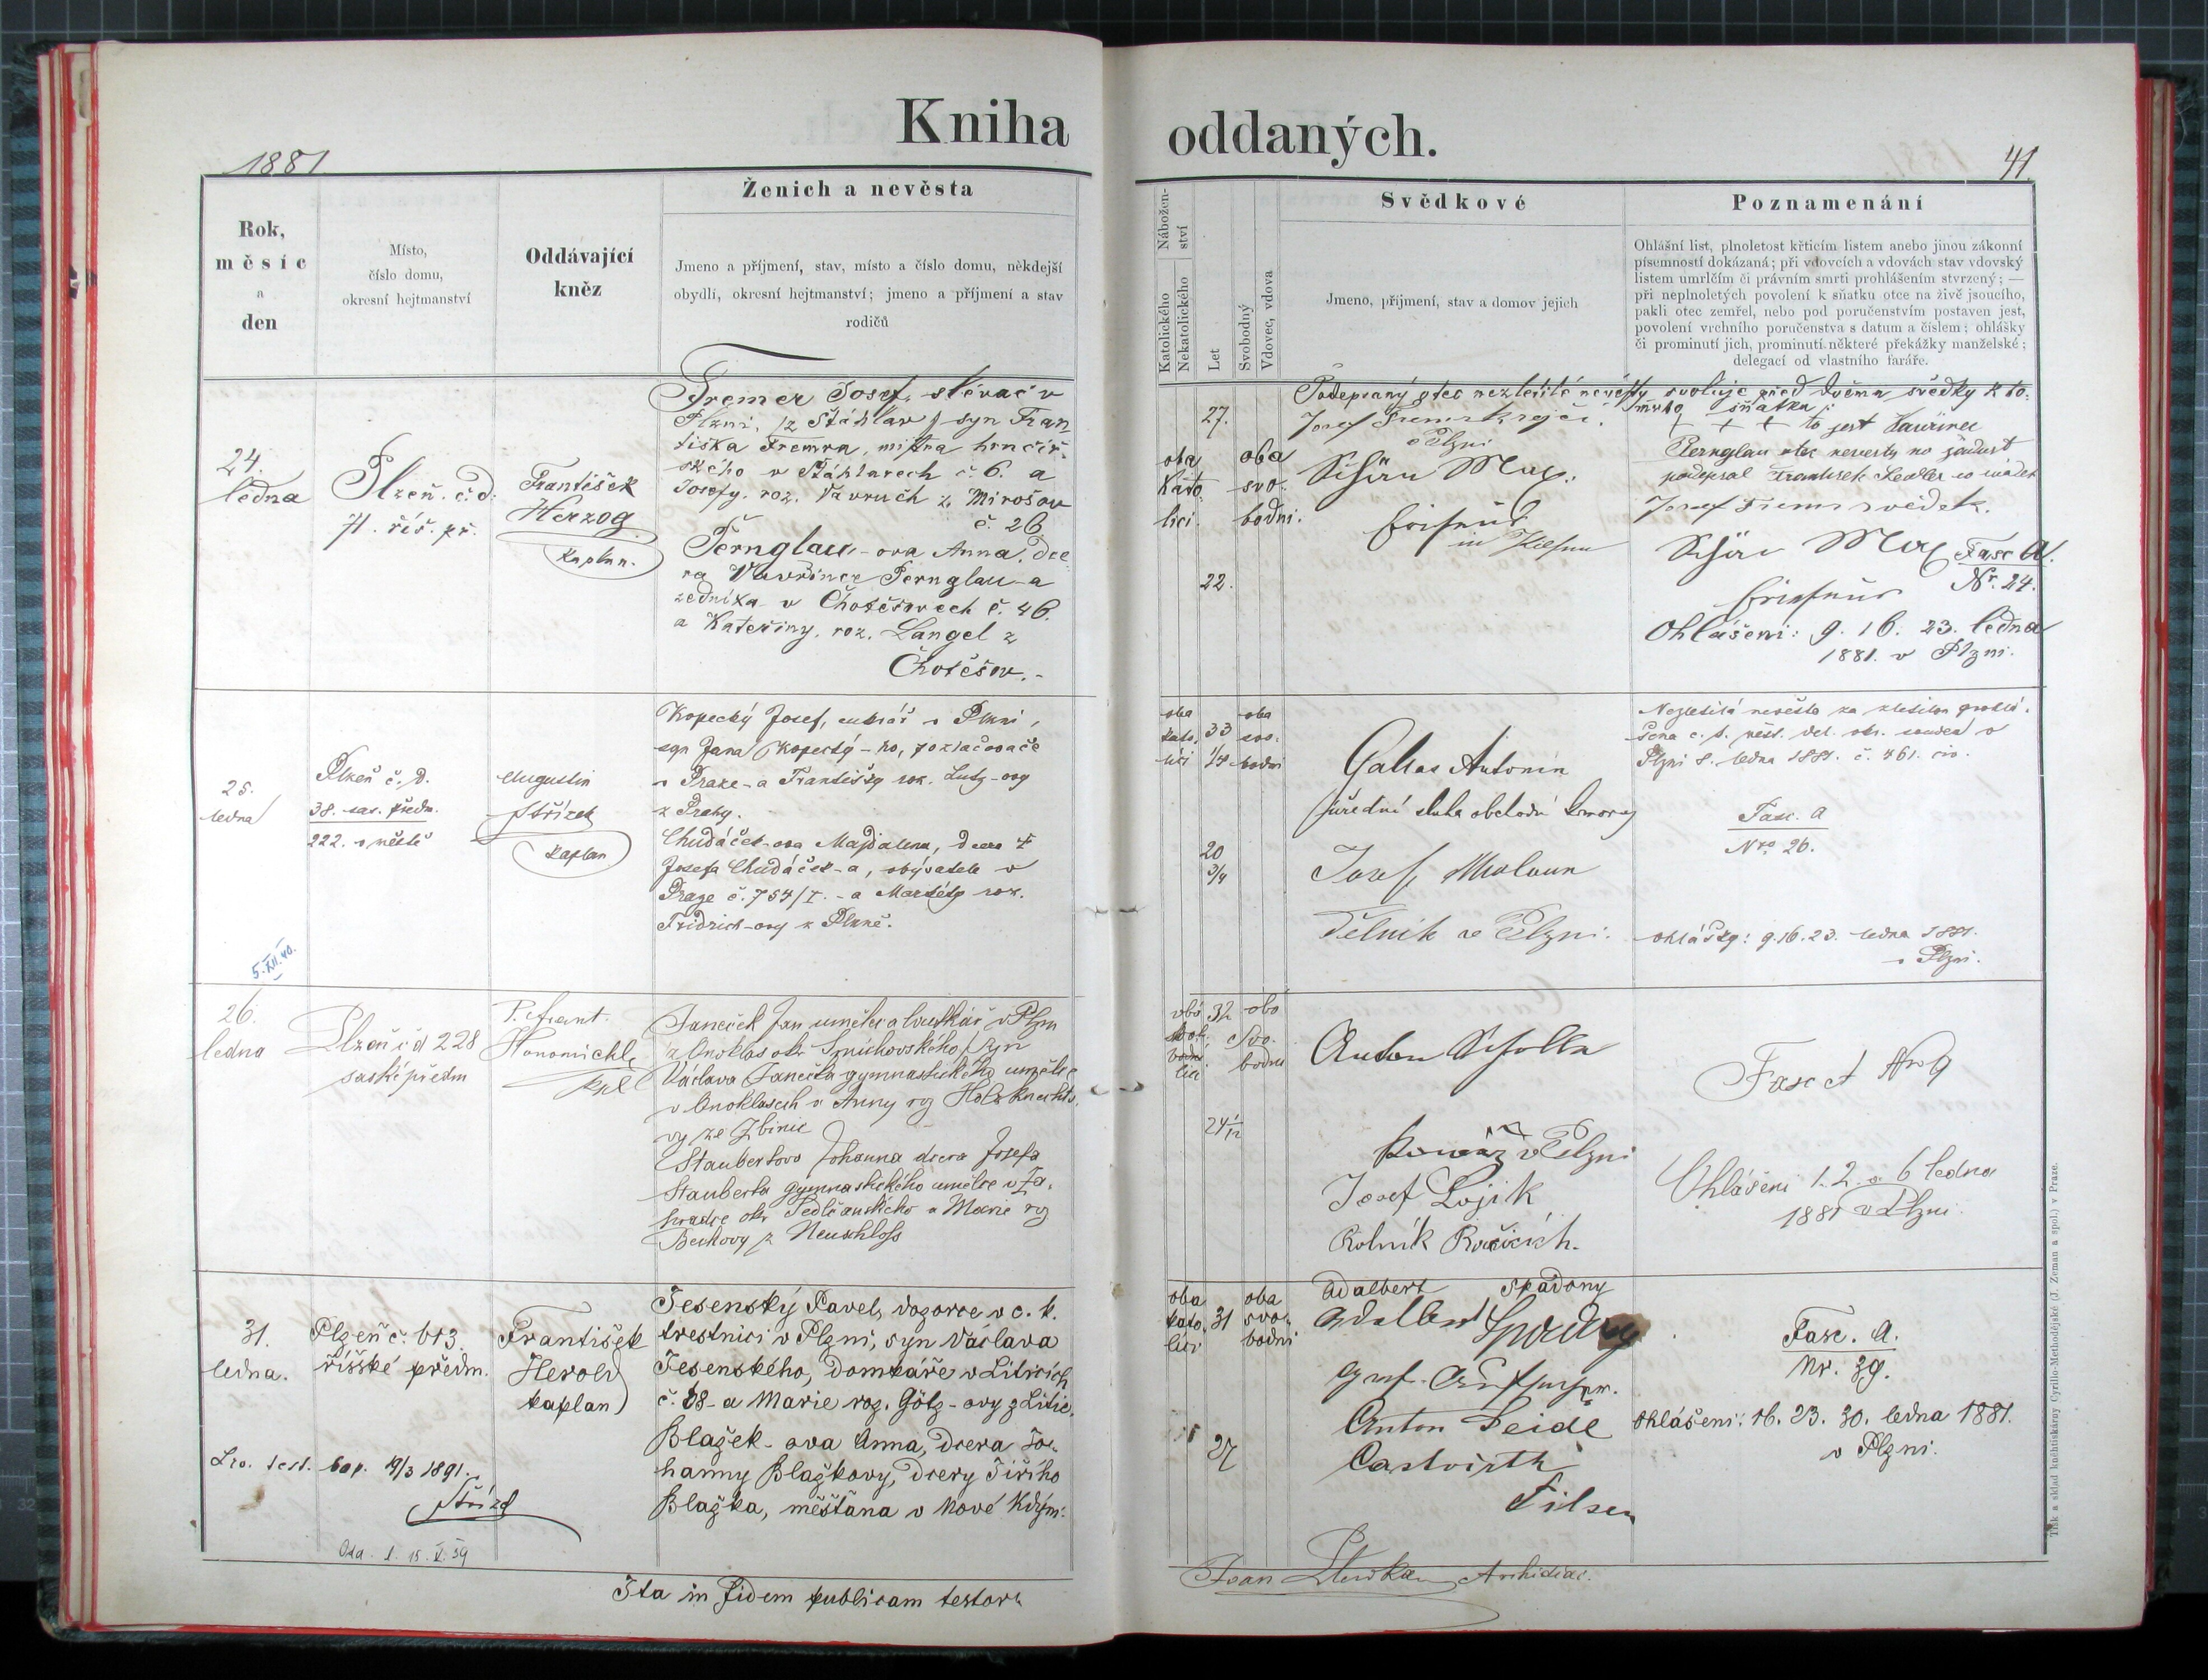 Kniha oddaných.
1881
41.
Rok,
měsíc
a
den
Místo,
číslo domu,
okresní hejtmanství
Oddávající
kněz
Ženich a nevěsta
Jmeno a příjmení, stav, místo a číslo domu, někdejší
obydlí, okresní hejtmanství; jmeno a příjmení a stav
rodičů
Nábožen-
ství
Katolického
Nekatolického
Let
Svobodný
Vdovec, vdova
Svědkové
Jmeno, příjmení, stav a domov jejich
Poznamenání
Ohlášní list, plnoletost křticím listem anebo jinou zákonní
písemností dokázaná; při vdovcích a vdovách stav vdovský
listem umrlčím či právním smrti prohlášením stvrzený; —
při neplnoletých povolení k sňatku otce na živě jsoucího,
pakli otec zemřel, nebo pod poručenstvím postaven jest,
povolení vrchního poručenstva s datum a číslem; ohlášky
či prominutí jich, prominutí některé překážky manželské;
delegací od vlastního faráře.
24.
ledna
Plzeň. č. d.
71. říš. př.
František
Herzog
kaplan.
Fremer Josef, slévač v
Plzni, /z Štáhlav/ syn Fran
tiška Fremra, mistra hrnčíř-
ského v Štáhlavech č. 6. a
Josefy, roz. Vavruch z Mirošov
č. 26
Pernglau-ova Anna, dce
ra Vavřince Pernglau-a
zedníka v Chotěšovech č. 46.
a Kateřiny, roz. Langel z
Chotěšov.-
oba
kato
lici.
27.
22.
oba
svo-
bodni.
Podepsaný otec nezletilé nevěsty svoluje před dvěma svědky k to-
muto sňatku:
v Plzni
Schön Max.
Friseur
in Pilsen
+ + + to jest Vavřinec
Pernglau otec nevesty na žádost
podepsal Frantisek Sedler co svědek
svědek.
Schön Max
Friseur
Fasc A.
Nr. 24.
Ohlášeni: 9. 16. 23. ledna
1881. v Plzni.
25.
ledna
Plzeň č. d.
38. sas. předm.
222. v městě
Augustin
Střízek
kaplan
Kopecký Josef, cukrář v Plzni,
syn Jana Kopecký-ho, pozlačovače
v Praze - a Františky roz. Lutz-ovy
z Prahy.
Chudáček-ova Majdalena, dcera †
Josefa Chudáček-a, obývatele v
Praze č. 754/I. - a Markéty roz.
Fridrich-ovy z Plzně.
oba
kato-
lici
33
1/4
20
3/4
oba
svo-
bodni
Galias Antonin
úřední sluha obchodní komory
Josef
v Plzni.
Nezletilá nevěsta za zletilou prohlá-
šena c. k. měst. del. okr. soudem v
Plzni 8. ledna 1881. č. 461. civ.
Fasc. A
Nro 26.
ohlášky: 9. 16. 23. ledna 1881.
v Plzni.
5. XII. 40.
26.
ledna
Plzeň č d 228
saské předm
P. Frant.
Hanomichl,
kpl
Janeček Jan umělec a loutkář v Plzni
z Únoklas okr Smíchovského, syn
Václava Janečka gymnastického umělce
v Únoklasech a Anny roz Holzknechto-
vy ze Zbinic
Staubertova Johanna dcera Josefa
Stauberta gymnastického umělce v Za-
hradce okr Sedlčanského a Marie roz
Beckovy z Neuschloss
32
24 1/12
Svo-
bodni
Anton Scholla
v Plzni
Josef Lojik
Rolník
Fasc A Nro 9
Ohlášení 1. 2. a 6 ledna
1881 v Plzni.
31.
ledna.
Plzeň č. 613.
říšské předm.
František
Herold
kaplan
Jesenský Pavel, dozorce v c. k.
trestnici v Plzni, syn Václava
Jesenského, domkáře v Liticích
č. 68 - a Marie roz. Götz-ovy z Litic.
Blažek-ova Anna, dcera Jo-
hanny Blažkovy, dcery Jiřího
Blažka, měšťana v Nové Kdýni.
oba
kato-
lici
31
27
oba
svo-
bodni
Adalbert Spadony
Adalbert Spadony
Anton Seidl
Castwirth
Pilsen
Fasc. A.
Nr. 39.
Ohlášeni: 16. 23. 30. ledna 1881.
v Plzni.
Lro. test. bap. 19/3 1891.
Střízek
Oda. I. 15. V. 39
Ita in fidem publicam testor:
Archidiac.
Tisk a sklad knihtiskárny Cyrillo-Methodějské (J. Zeman a spol.) v Praze.